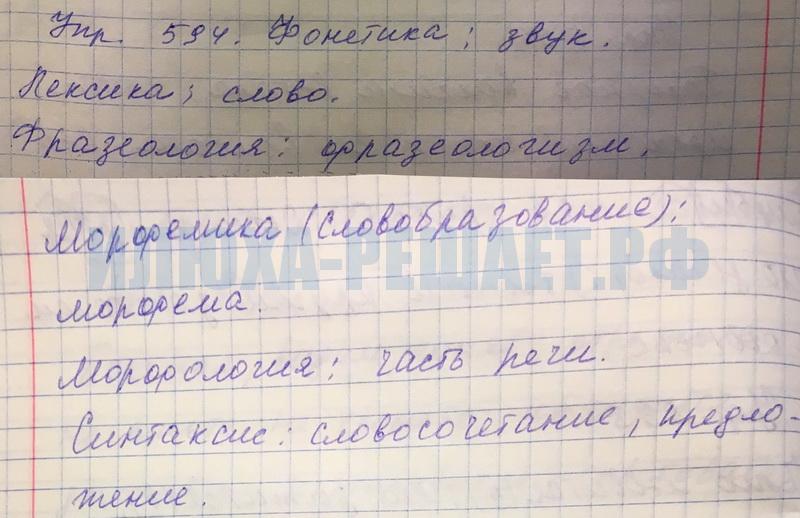 Упр. 594. Фонетика: звук.
Лексика: слово.
Фразеология: фразеологизм.
Морфемика (словобразование):
ИЛЮХА-РЕШАЕТ.РФ
морфема.
Морфология: часть речи.
Синтаксис: словосочетание, предло-
жение.